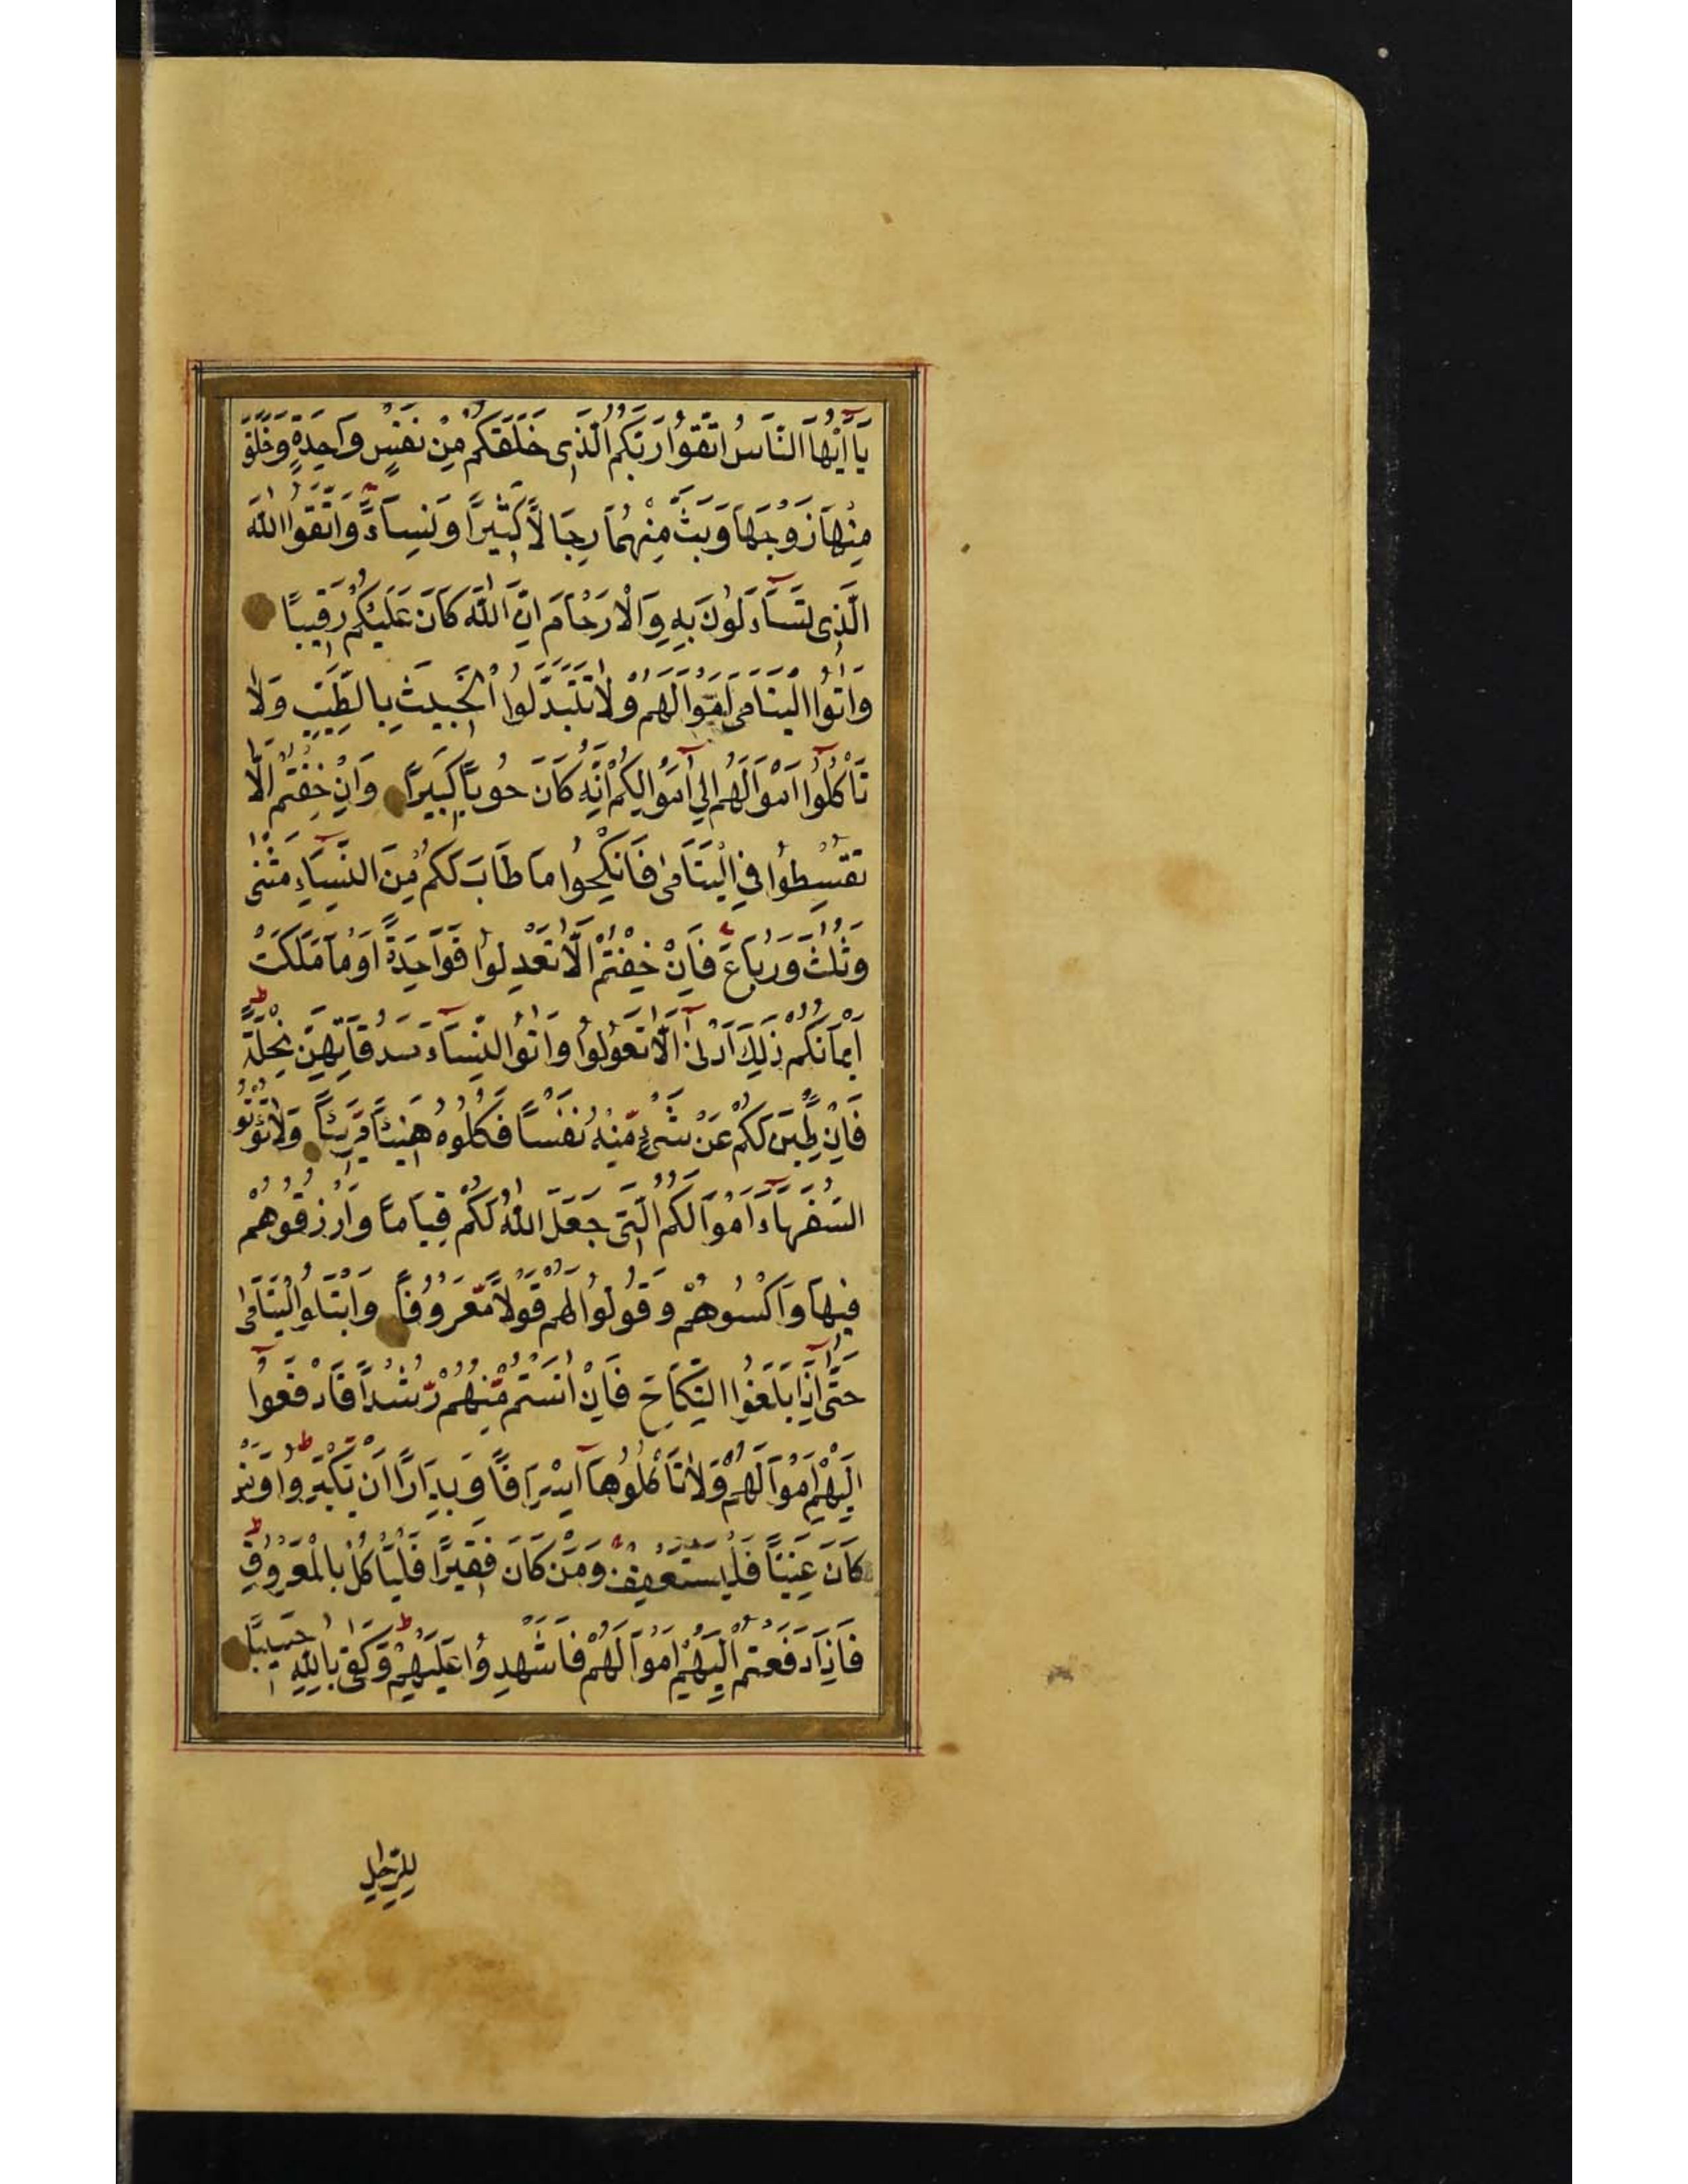 يَٓا اَيُّهَا النَّاسُ اتَّقُوا رَبَّكُمُ الَّذٖى خَلَقَكُمْ مِنْ نَفْسٍ وَاحِدَةٍ وَخَلَقَ
مِنْهَا زَوْجَهَا وَبَثَّ مِنْهُمَا رِجَالًا كَثٖيرًا وَنِسَٓاءً وَاتَّقُوا اللّٰهَ
الَّذٖى تَسَٓاءَلُونَ بِهٖ وَالْاَرْحَامَ اِنَّ اللّٰهَ كَانَ عَلَيْكُمْ رَقٖيبًا
وَاٰتُوا الْيَتَامٰى اَمْوَالَهُمْ وَلَا تَتَبَدَّلُوا الْخَبٖيثَ بِالطَّيِّبِ وَلَا
تَاْكُلُٓوا اَمْوَالَهُمْ اِلٰٓى اَمْوَالِكُمْ اِنَّهُ كَانَ حُوبًا كَبٖيرًا وَاِنْ خِفْتُمْ اَلَّا
تُقْسِطُوا فِى الْيَتَامٰى فَانْكِحُوا مَا طَابَ لَكُمْ مِنَ النِّسَٓاءِ مَثْنٰى
وَثُلٰثَ وَرُبَاعَ فَاِنْ خِفْتُمْ اَلَّا تَعْدِلُوا فَوَاحِدَةً اَوْ مَا مَلَكَتْ
اَيْمَانُكُمْ ذٰلِكَ اَدْنٰٓى اَلَّا تَعُولُوا وَاٰتُوا النِّسَٓاءَ سَدُقَاتِهِنَّ نِحْلَةً
فَاِنْ طِبْنَ لَكُمْ عَنْ شَىْءٍ مِنْهُ نَفْسًا فَكُلُوهُ هَنٖيئًا مَرٖيئًا وَلَا تُؤْتُو
السُّفَهَٓاءَ اَمْوَالَكُمُ الَّتٖى جَعَلَ اللّٰهُ لَكُمْ قِيَامًا وَارْزُقُوهُمْ
فٖيهَا وَاكْسُوهُمْ وَقُولُوا لَهُمْ قَوْلًا مَعْرُوفًا وَابْتَلُوا الْيَتَامٰى
حَتّٰٓى اِذَا بَلَغُوا النِّكَاحَ فَاِنْ اٰنَسْتُمْ مِنْهُمْ رُشْدًا فَادْفَعُٓوا
اِلَيْهِمْ اَمْوَالَهُمْ وَلَا تَاْكُلُوهَٓا اِسْرَافًا وَبِدَارًا اَنْ يَكْبَرُوا وَمَنْ
كَانَ غَنِيًّا فَلْيَسْتَعْفِفْ وَمَنْ كَانَ فَقٖيرًا فَلْيَاْكُلْ بِالْمَعْرُوفِ
فَاِذَا دَفَعْتُمْ اِلَيْهِمْ اَمْوَالَهُمْ فَاَشْهِدُوا عَلَيْهِمْ وَكَفٰى بِاللّٰهِ حَسٖيبًا
لِلرِّجَالِ